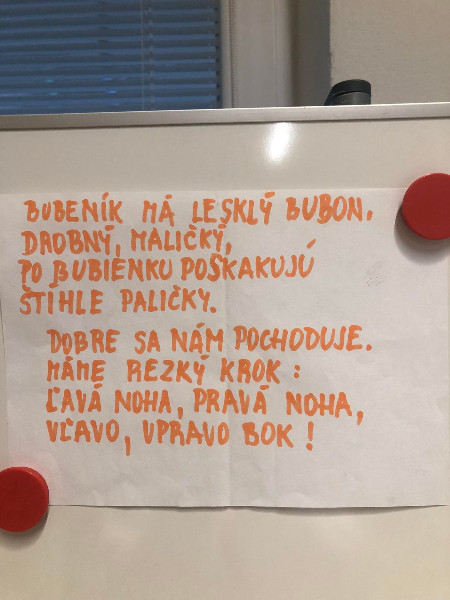 BUBENÍK MÁ LESKLÝ BUBON.
DROBNÝ, MALIČKÝ,
PO BUBIENKU POSKAKUJÚ
ŠTÍHLE PALIČKY.
DOBRE SA NÁM POCHODUJE.
MÁME REZKÝ KROK:
ĽAVÁ NOHA, PRAVÁ NOHA,
VĽAVO, VPRAVO BOK!